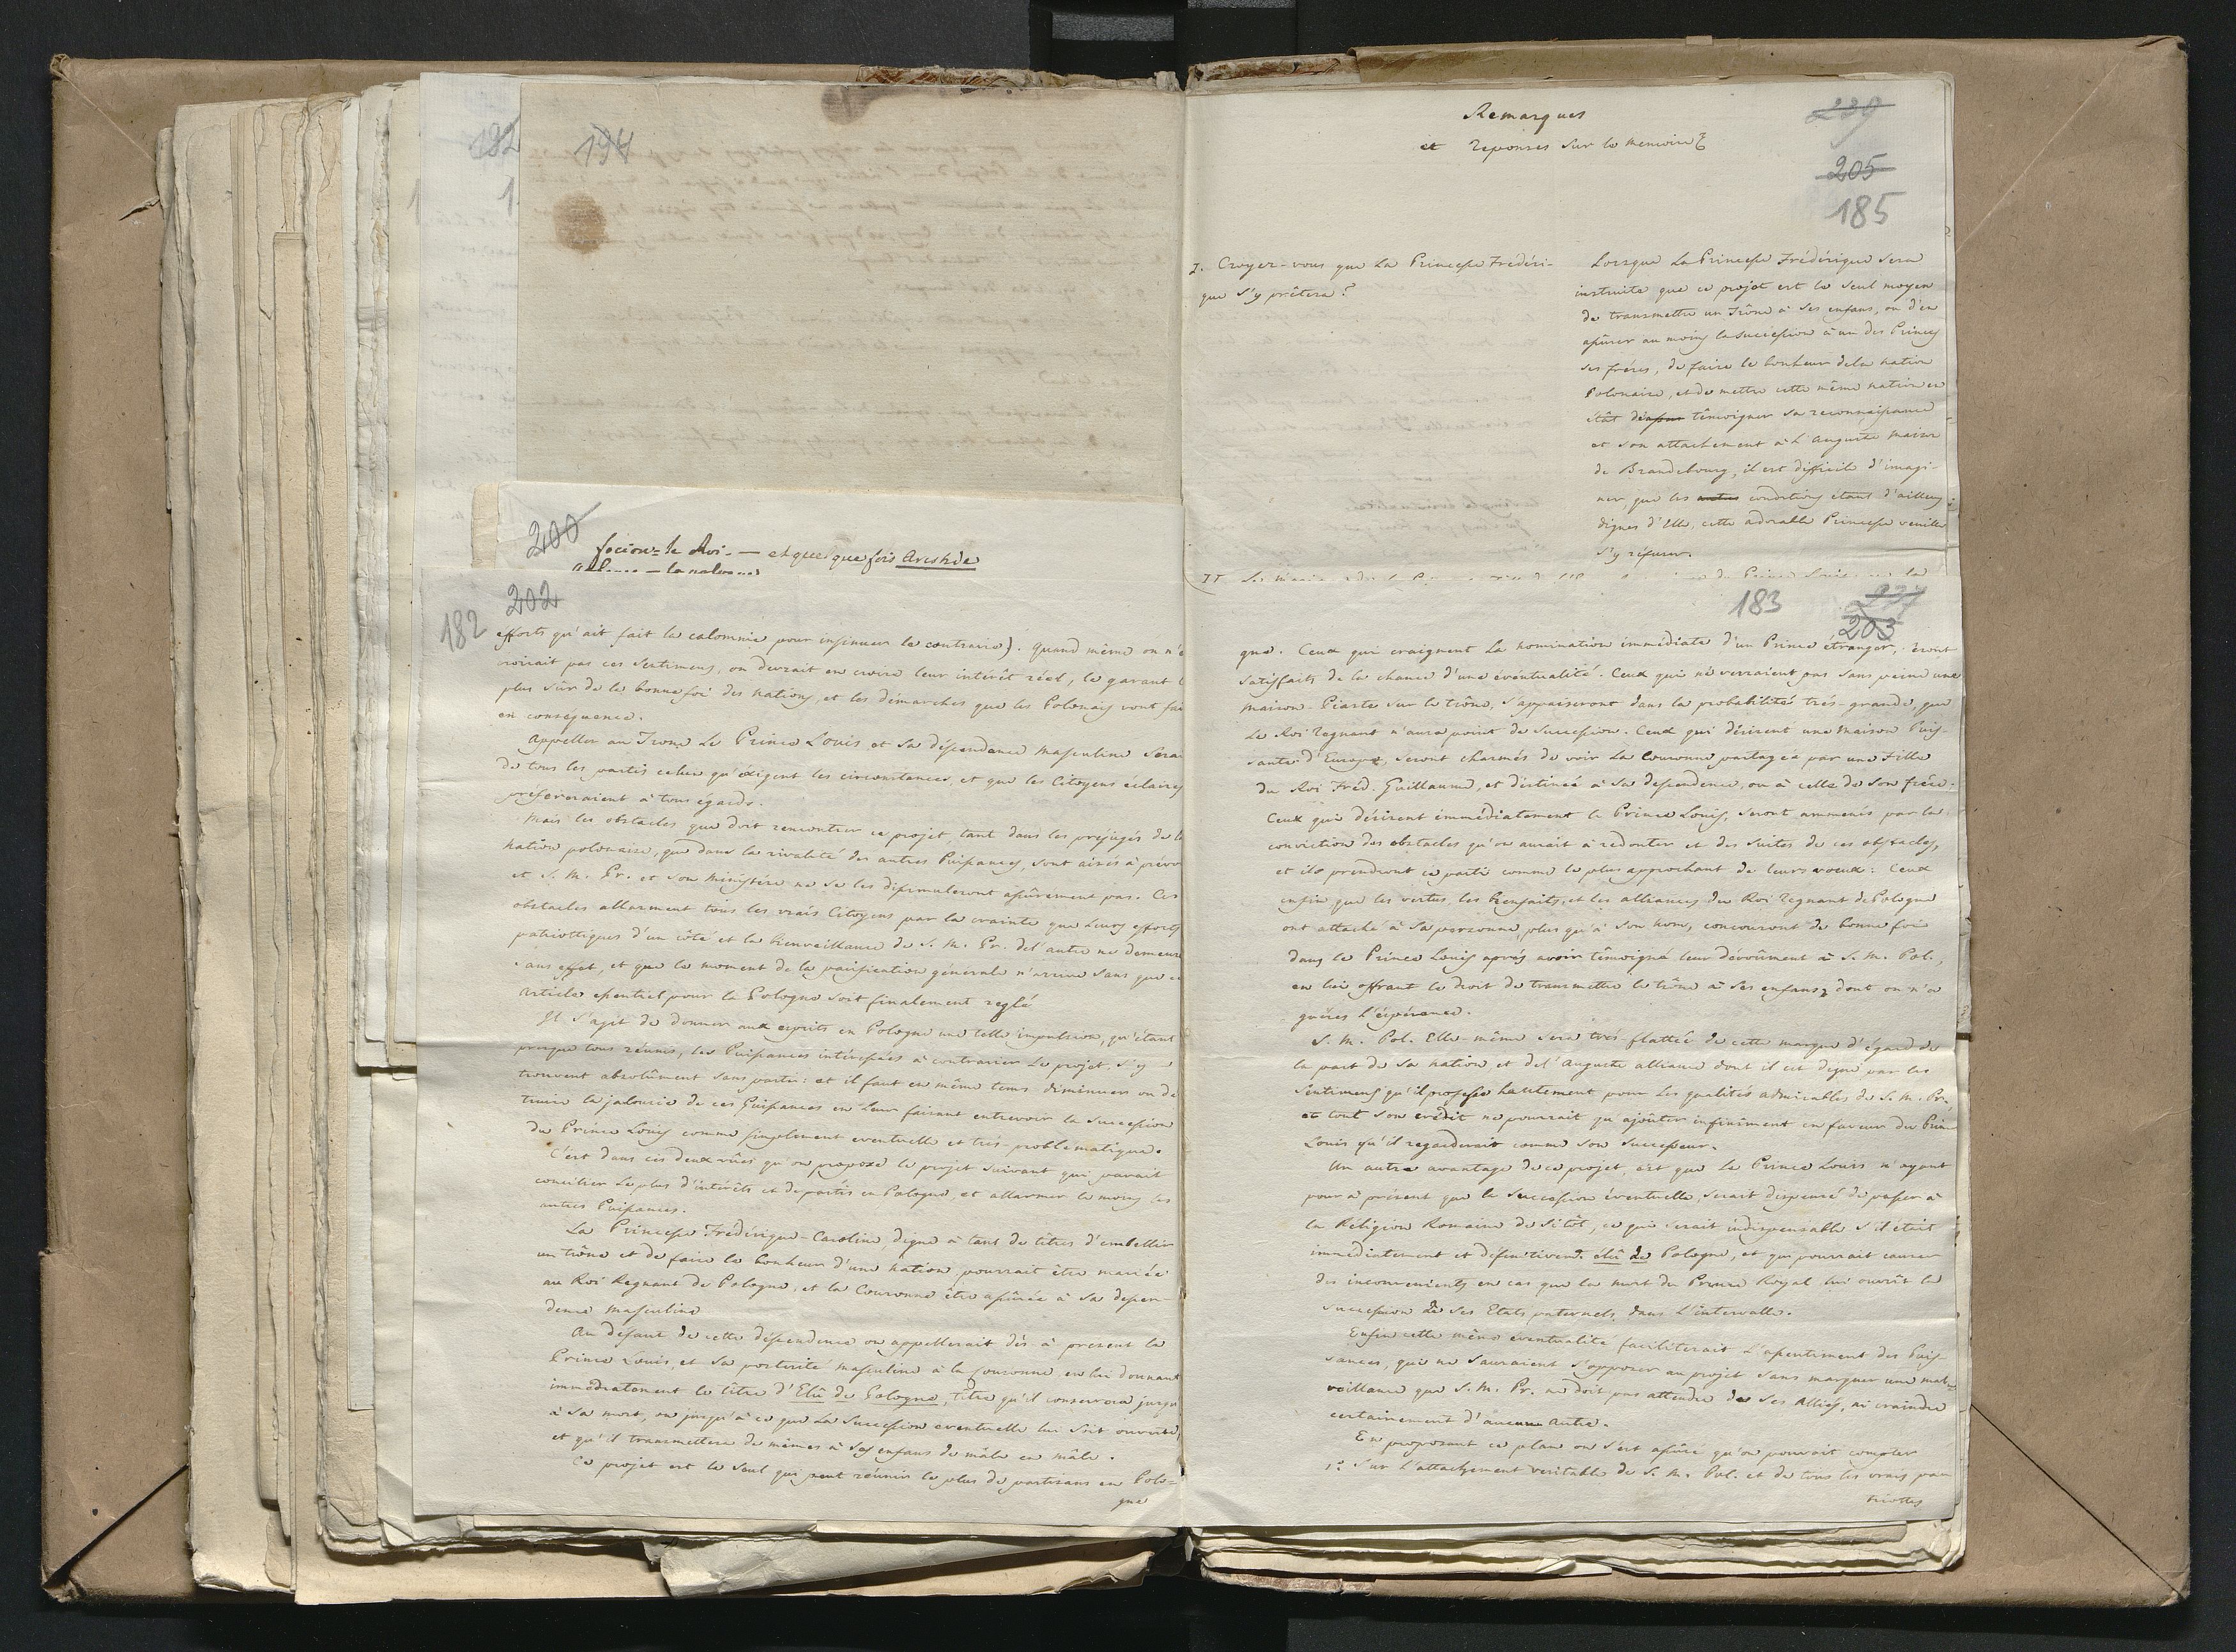 182
194
200
focion = le Roi. — et quelque fois Aristide
182
202
efforts qu'ait fait la calomnie pour insinuer le contraire). Quand même on n'e
croirait pas ces sentimens, on devrait en croire leur intérêt réel, le garant l
plus sûr de la bonne foi des nations, et les démarches que les Polonais vont fai
en conséquence.
Appeller au Trone Le Prince Louis et sa déscendance masculine sera
de tous les partis celui qu'éxigent les circonstances, et que les Citoyens éclairés
prefereraient à tous égards.
Mais les obstacles que doit rencontrer ce projet, tant dans les préjugés de l
nation polonaise, que dans la rivalité des autres Puissances, sont aisés à prévo
et S. M. Pr. et son Ministère ne se les dissimuleront assurement pas. Ces
obstacles allarment tous les vrais Citoyens par la crainte que leurs efforts
patriottiques d'un côté et la bienveillance de S. M. Pr. de l'autre ne demeure
sans effet, et que le moment de la pacification générale n'arrive sans que c
article essentiel pour la Pologne soit finalement reglé
Il s'agit de donner aux esprits en Pologne une telle impulsion, qu'étant
presque tous réunis, les Puissances intéressées à contrarier le projet, s'y
trouvent absolûment sans partis: et il faut en même tems diminuer ou dé
truire la jalousie de ces Puissances en leur faisant entrevoir la succession
du Prince Louis comme simplement eventuelle et très problématique.
C'est dans ces deux vûes qu'on propose le projet suivant qui parait
concilier le plus d'intérêts et de partis en Pologne, et allarmer le moins les
autres Puissances.
La Princesse Frédérique-Caroline, digne à tant de titres d'embellir
un trône et de faire le bonheur d'une nation pourrait être mariée
au Roi Regnant de Pologne, et la Couronne être assurée à sa descen-
dence masculine
Au défaut de cette déscendence on appellerait dès à present le
Prince Louis, et sa posterité masculine à la Couronne en lui donnant
immédiatement le titre d'Elû de Pologne, titre qu'il conservera jusqu
à sa mort, ou jusqu'à ce que la succession eventuelle lui soit ouverte,
et qu'il transmettera de mêmes à ses enfans de mâle en mâle.
Ce projet est le seul qui peut réunir le plus de partisans en Polo-
gne
Remarques
et reponses sur le memoire
239
205
185
I. Croyez-vous que La Princesse Frédéri-
que s'y prêtera?
Lorsque La Princesse Frédérique sera
instruite que ce projet est le seul moyen
de transmettre un Trône à ses enfans, ou d'en
assurer au moins la succession à un des Princes
ses fréres, de faire le bonheur de la nation
Polonaise, et de mettre cette même nation en
état de témoigner sa reconnaissance
et son attachement à l'auguste Maison
de Brandebourg, il est difficile d'imagi-
ner, que les conditions étant d'ailleurs
dignes d'Elle, cette adorable Princesse veuille
s'y réfuser.
II
183
237
203
gne. Ceux qui craignent la nomination immédiate d'un Prince étranger, seront
satisfaits de la chance d'une éventualité. Ceux qui ne verraient pas sans peine une
maison Piaste sur le trône, s'appaiseront dans la probabilité très-grande, que
le Roi regnant n'aura point de succession. Ceux qui désirent une maison Puis-
sante d'Europe, seront charmés de voir la Couronne partagée par une fille
du Roi Fréd. Guillaume, et destinée à sa descendence, ou à celle de son frère.
Ceux qui désirent immédiatement le Prince Louis, seront ammenés par la
conviction des obstacles qu'on aurait à redouter et des suites de ces obstacles,
et ils prendront ce parti comme le plus approchant de leurs voeux: Ceux
enfin que les vertus, les bienfaits, et les alliances du Roi regnant de Pologne
ont attaché à sa personne, plus qu'à son nom, concouront de bonne foi
dans le Prince Louis après avoir témoigné leur dévoument à S. M. Pol.,
en lui offrant le droit de transmettre le trône à ses enfans, dont on n'a
guères l'espérance.
S. M. Pol. Elle-même sera très-flattée de cette marque d'égard de
la part de sa nation et de l'auguste alliance dont il est digne par les
sentimens qu'il professe hautement pour les qualités admirables de S. M. Pr.
et tout son crédit ne pourrait qu'ajoûter infiniment en faveur du Prin
Louis qu'il regarderait comme son successeur.
Un autre avantage de ce projet, est que le Prince Louis n'ayant
pour à présent que la succession éventuelle, serait dispensé de passer à
la Réligion Romaine de sitôt, ce qui serait indispensable s'il était
immédiatement et definitivemt. élû de Pologne, et qui pourrait causer
des inconvenients en cas que la mort du Prince Royal lui ouvrit la
succession de ses Etats paternels, dans l'intervalle.
Enfin cette même éventualité faciliterait l'assentiment des Puis-
sances, qui ne sauraient s'opposer au projet sans marquer une mal-
veillance que S. M. Pr. ne doit pas attendre de ses Alliés, ni craindre
certainement d'aucune autre.
En proposant ce plan on s'est assuré qu'on pouvait compter
1º. Sur l'attachement veritable de S. M. Pol. et de tous les vrais pa
triottes